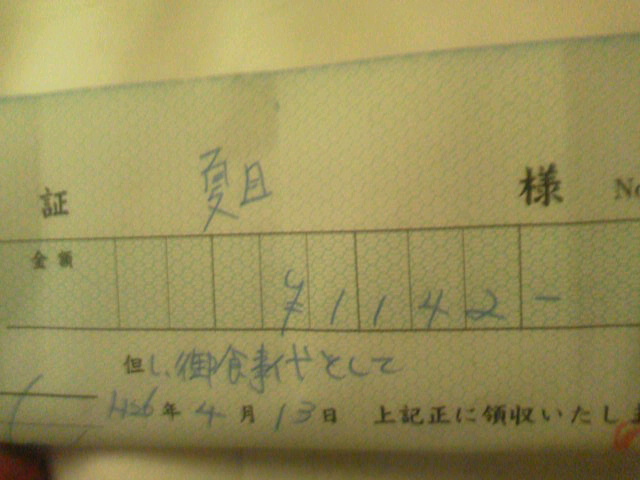 証 夏目 様 No
金額 ¥1142-
但し、御食事代として
H26年4月13日 上記正に領収いたしま